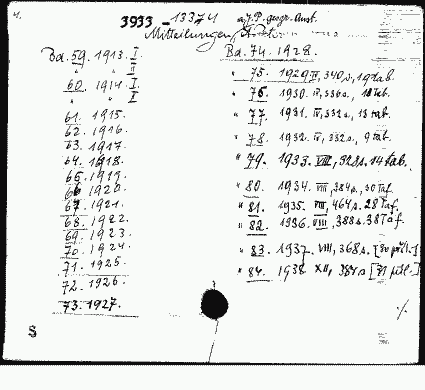 4.
3933 - 13374 a J. P. geogr. Anst.
Mitteilungen
Bd. 59. 1913. I.
" " II
60. 1914. I.
" " II
61. 1915.
62. 1916.
63. 1917.
64. 1918.
65. 1919.
66 1920.
67. 1921.
68. 1922.
69. 1923.
70. 1924.
71. 1925.
72. 1926.
73. 1927.
Bd. 74. 1928.
" 75. 1929 IV, 340 s, 19 tab.
" 76. 1930. IV, 336 s., 18 tab.
" 77. 1931. IV, 332 s., 13 tab.
" 78. 1932. IV, 332 s., 9 tab.
" 79. 1933. VIII, 328 s. 14 tab.
" 80. 1934. VIII, 384 s., 50 Taf.
" 81. 1935. VIII, 464 s. 28 Taf.
" 82. 1936. VIII, 388 s. 38 Taf.
" 83. 1937. VIII, 368 s.
" 84. 1938. XII, 384 s
./.
S